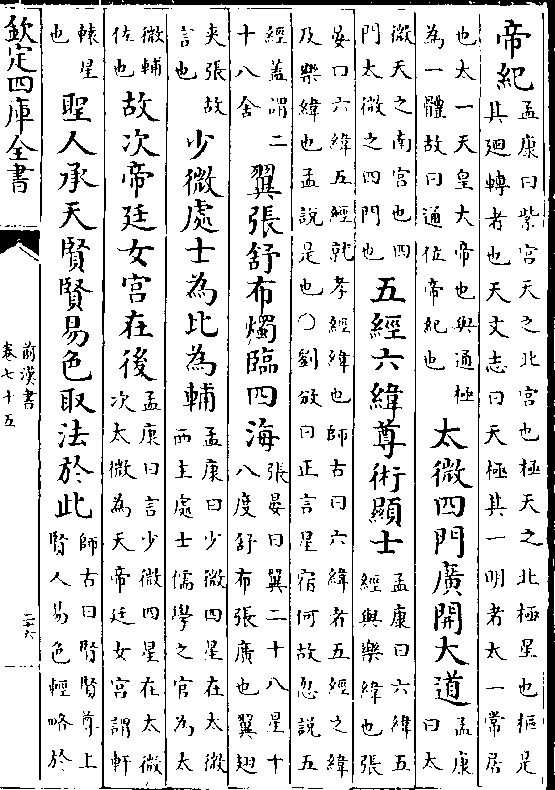 帝紀孟康曰紫宮天之北宮也極天之北極星也樞是其廻轉者也天文志曰天極其一明者太一常居
也太一天皇大帝也與通極為一體故曰通位帝紀也太微四門廣開大道孟康曰太
微天之南宮也四門太微之四門也五經六緯尊術顯士孟康曰六緯五經與樂緯也張
晏曰六緯五經就孝經緯也師古曰六緯者五經之緯及樂緯也孟說是也○劉攽曰正言星宿何故忽說五
經蓋謂二十八舍翼張舒布燭臨四海張晏曰翼二十八星十八度舒布張廣也翼翅
夾張故言也少微處士為比為輔孟康曰少微四星在太微西主處士儒學之官為太
微輔佐也故次帝廷女宮在後孟康曰言少微四星在太微次太微為天帝廷女宮謂軒
轅星也聖人承天賢賢易色取法於此師古曰賢賢尊上賢人易色輕略於
欽定四庫全書
前漢書
卷七十五
二六